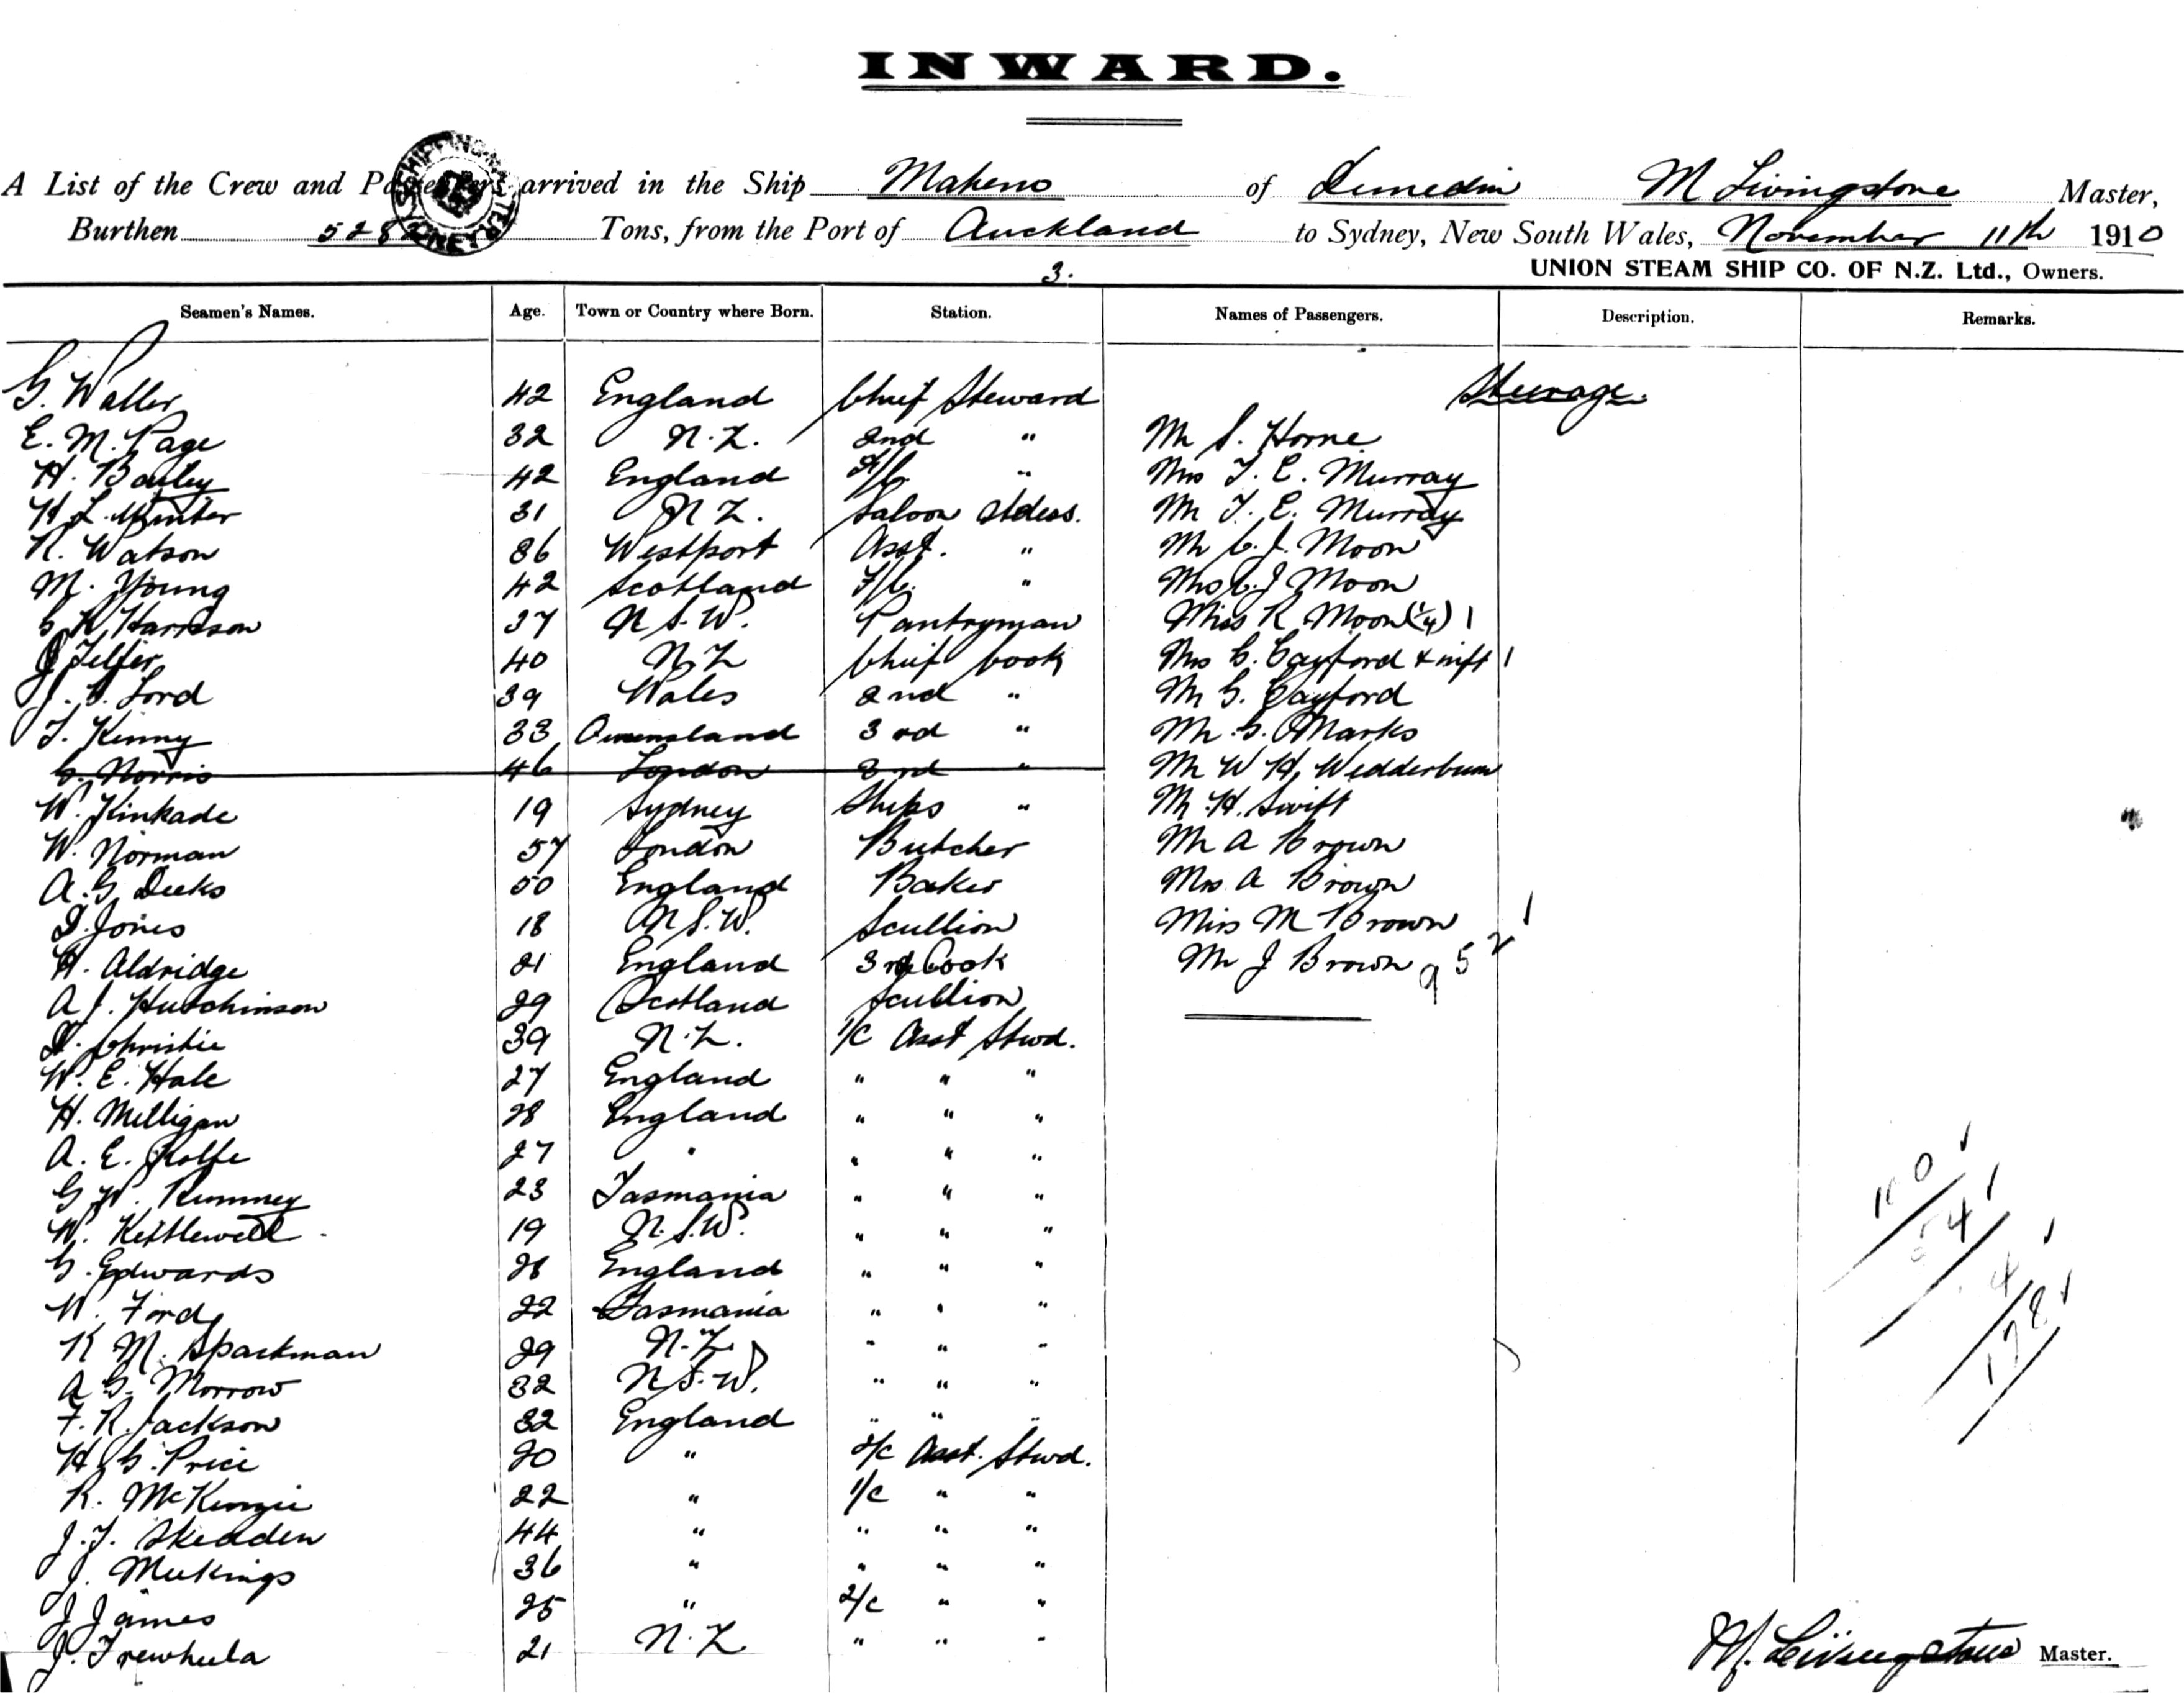 INWARD.
A List of the Crew and Passengers arrived in the Ship Maheno of Dunedin M Livingstone Master,
Burthen 5282 Tons, from the Port of Auckland to Sydney, New South Wales, November 11th 1910
3. UNION STEAM SHIP CO. OF N.Z. Ltd., Owners.
Seamen's Names. Age. Town or Country where Born. Station. Names of Passengers. Description. Remarks.
Steerage.
G. Waller 42 England Chief Steward
E. M. Page 32 N.Z. 2nd " Mr S. Horne
H. Bailey 42 England F/C. " Mrs T. E. Murray
H L. Minter 31 N Z. Saloon Stdess. Mr T. E. Murray
R. Watson 36 Westport Asst. " Mr C. J. Moon
M. Young 42 Scotland F/C. " Mrs C. J Moon
C R Harrison 37 N S. W. Pantryman Miss R Moon (1/4) 1
J Telfer 40 N. Z Chief Cook Mrs G. Gayford & inft 1
J. G. Ford 39 Wales 2nd " Mr G. Gayford
T. Kenny 33 Queensland 3rd " Mr G. Marks
G. Norris 46 London 3rd " Mr W H. Wedderburn
W. Kinkade 19 Sydney Ships " Mr H. Swift
W. Norman 57 London Butcher Mr A Brown
A. G Deeks 50 England Baker Mrs A Brown
D. Jones 18 N S. W. Scullion Miss M Brown
H. Aldridge 21 England 3rd Cook Mr J Brown 9 5 2
A J. Hutchinson 29 Scotland Scullion
D. Christie 39 N. Z. 1/C Asst Stwd.
W. E. Hale 27 England " " "
H. Milligan 28 England " " "
A. E. Rolfe 27 " " " "
G W. Rumney 23 Tasmania " " "
W. Kettlewell 19 N. S. W. " " "
G. Edwards 28 England " " "
W. Ford 22 Tasmania " " "
K M. Spackman 29 N. Z. " " "
A G. Morrow 32 N S. W. " " "
F. R. Jackson 32 England " " "
H. G. Price 20 " 2/C Asst. Stwd.
R. McKenzie 22 " 1/C " "
J. T. Skedden 44 " " " "
J. Meekings 36 " " " "
J James 25 " 2/C " "
J. Trewheela 21 N. Z " " "
M. Livingstone Master.